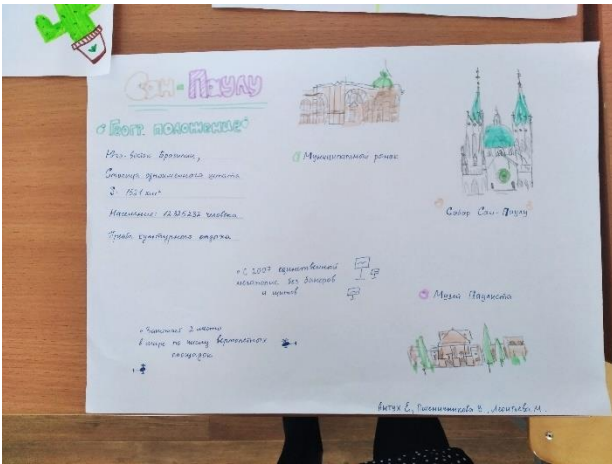 Сан-Паулу
Геогр. положение
Юго-восток Бразилии,
Столица одноименного штата
S: 1521 км²
Население: 12 325 232 человека
культурного отдыха
Муниципальный рынок
Собор Сан-Паулу
• С 2007 единственный
мегаполис без банеров
и щитов
Музей Паулиста
• Занимает 2 место
в мире по числу вертолетных
площадок
Е., Пшеничникова У., Леонтьева М.